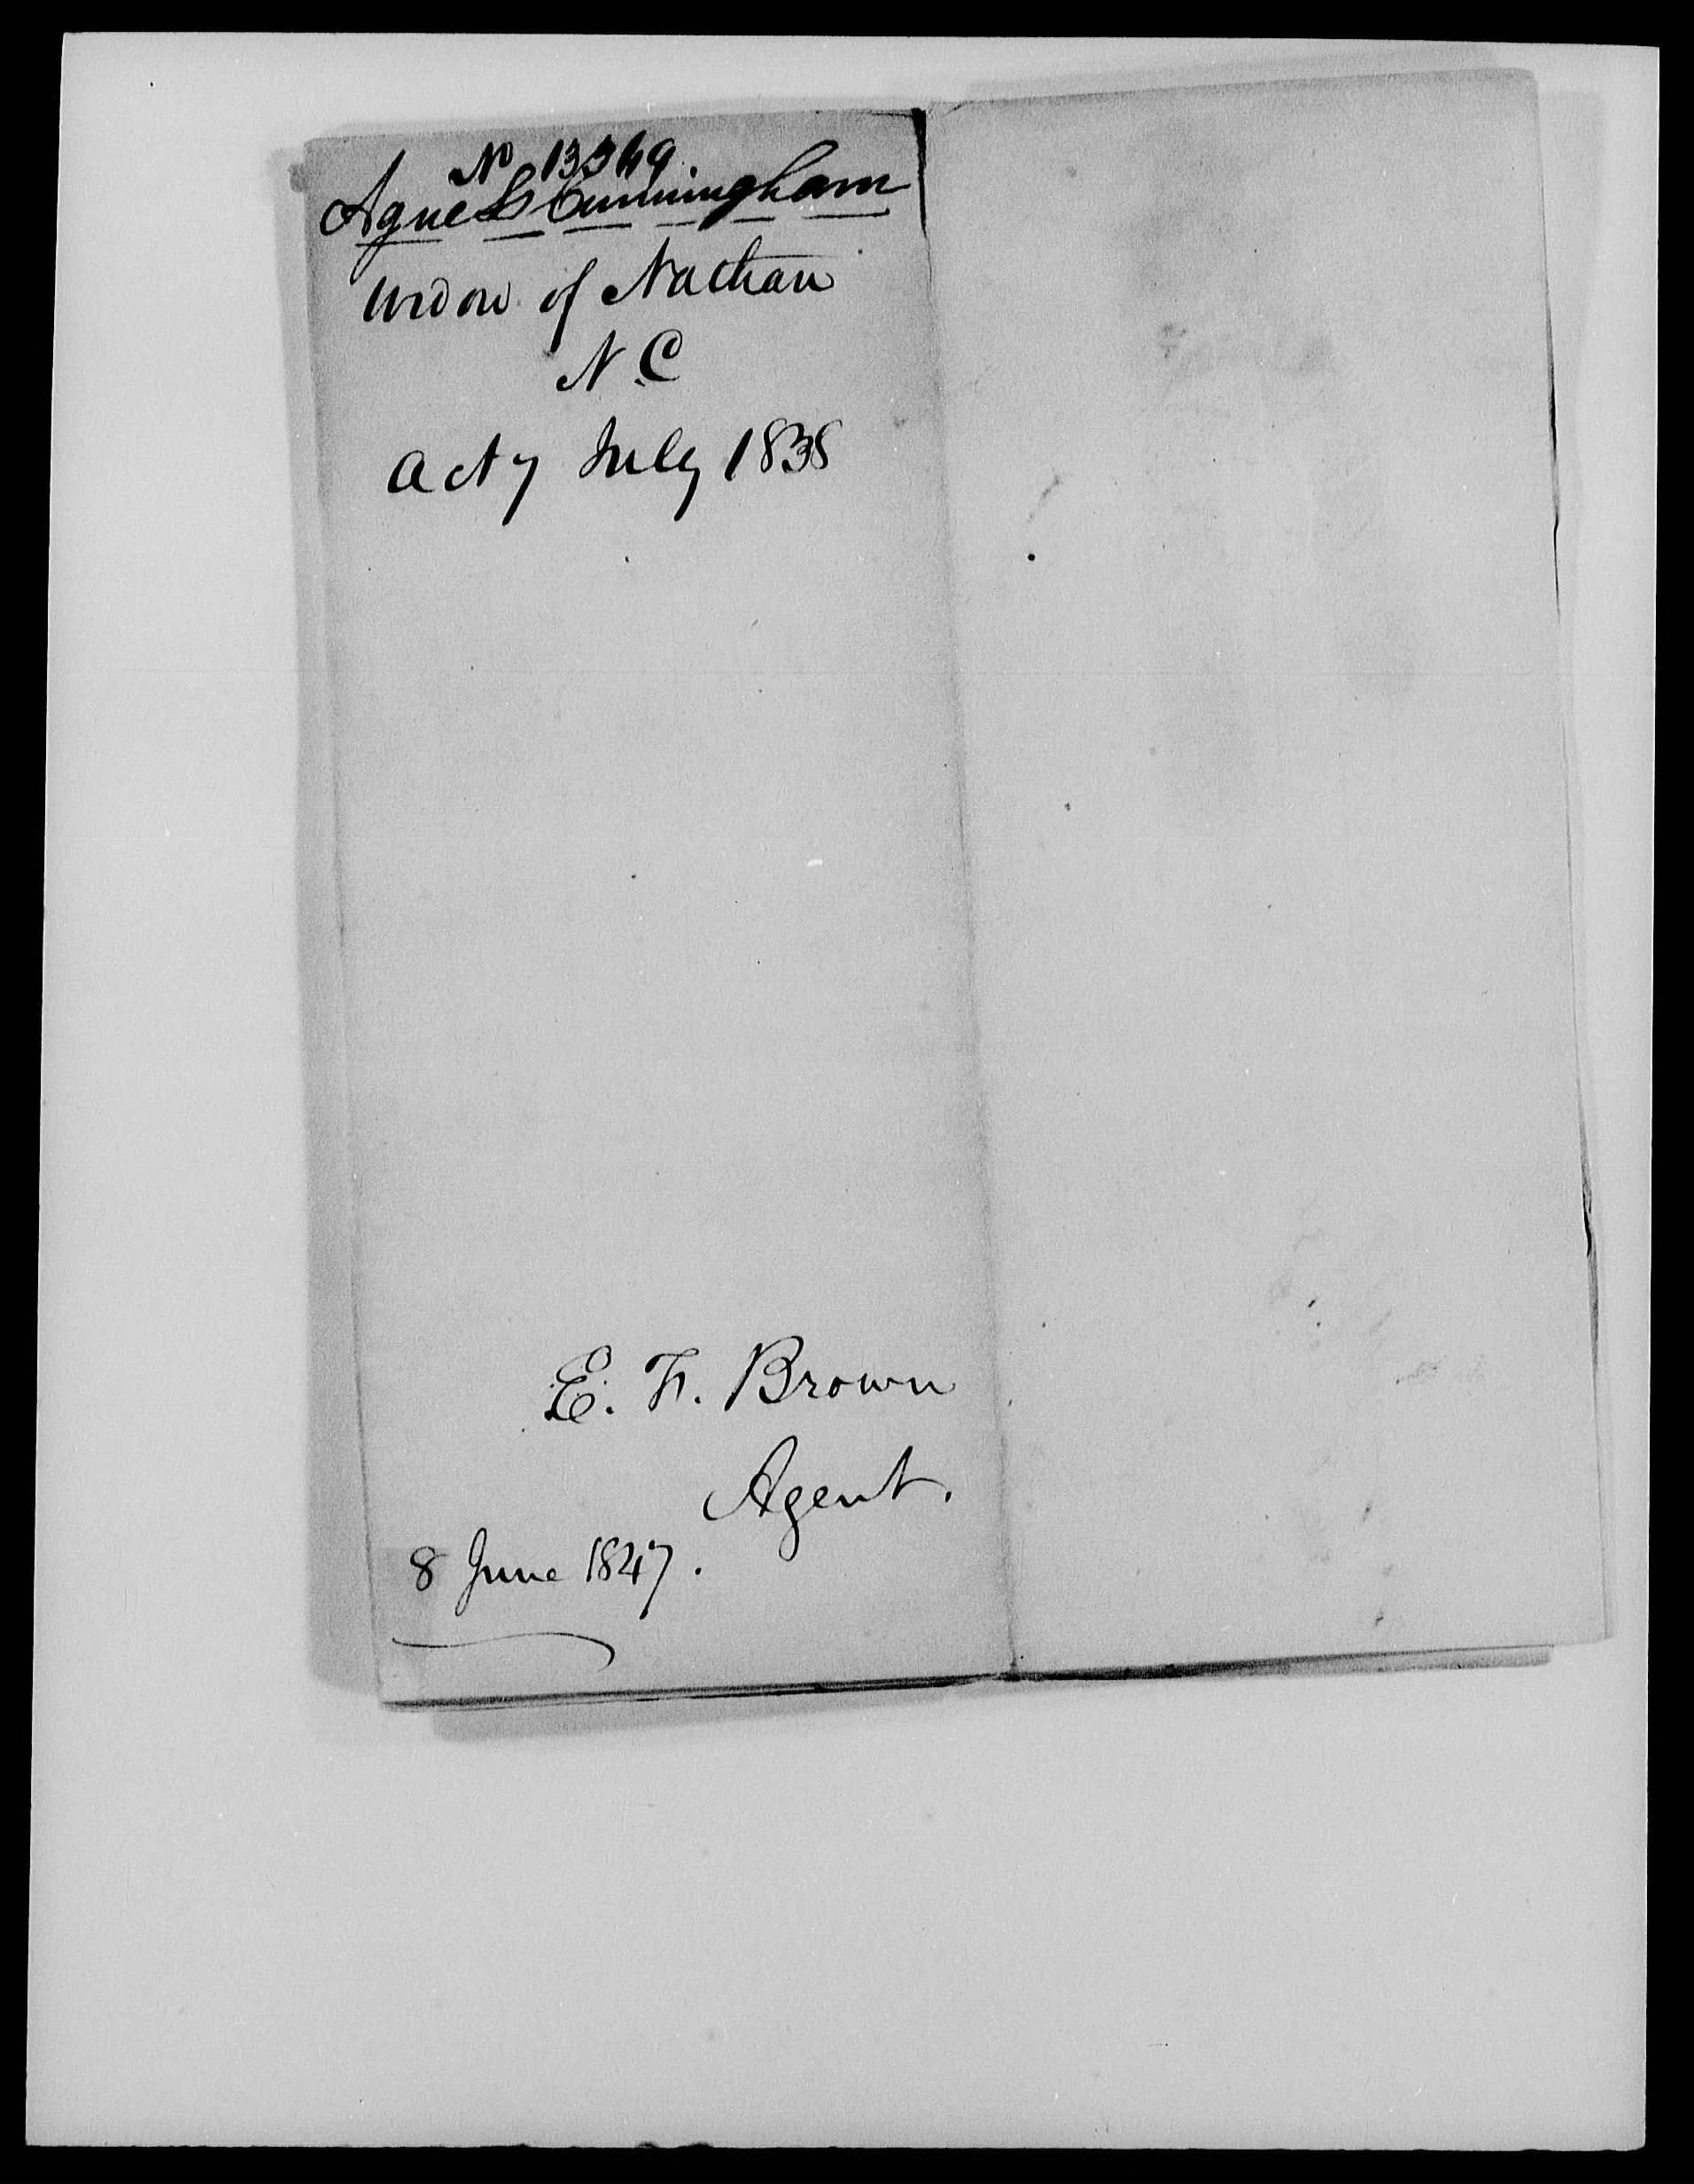 No 13349
Agnes Cunningham
Widow of Nathan
N.C
act 7 July 1838
E. F. Brown
Agent.
8 June 1847.